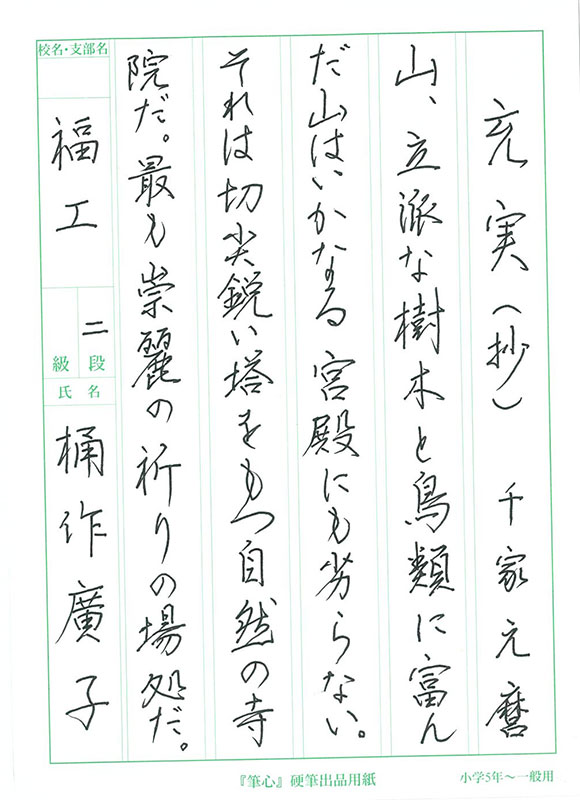 充実(抄) 千家元麿
山、立派な樹木と鳥類に富ん
だ山はいかなる宮殿にも劣らない。
それは切尖鋭い塔をもつ自然の寺
院だ。最も崇麗の祈りの場処だ。
校名・支部名
福工
二
段
級
氏名
桶作廣子
『筆心』硬筆出品用紙
小学5年〜一般用